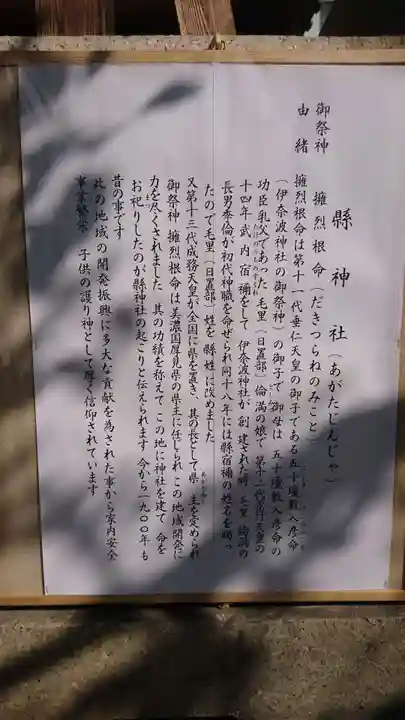 縣神社(あがたじんじゃ)
御祭神 擁烈根命(だきつらねのみこと)
由緒 擁烈根命は第十一代垂仁天皇の御子である五十瓊敷入彦命
(伊奈波神社の御祭神)の御子で 御母は 五十瓊敷入彦命の
功臣乳父であった 毛里(日置部)倫満の娘で 第十二代景行天皇の
十四年 武内宿禰をして 伊奈波神社が 創建された時 毛里 倫満の
長男季倫が初代神職を命ぜられ同十八年には縣宿禰の姓名を賜っ
たので毛里(日置部)姓を縣姓に改めました
又第十三代成務天皇が全国に県を置き、其の長として県主を定められ
御祭神 擁烈根命は美濃国厚見県の県主に任じられこの地域開発に
力を尽くされました 其の功績を称えて この地に神社を建て 命を
お祀りしたのが縣神社の起こりと伝えられます 今から一九〇〇年も
昔の事です
故の地域の開発振興に多大な貢献を為された事から家内安全
事業繁栄 子供の護り神として厚く信仰されています